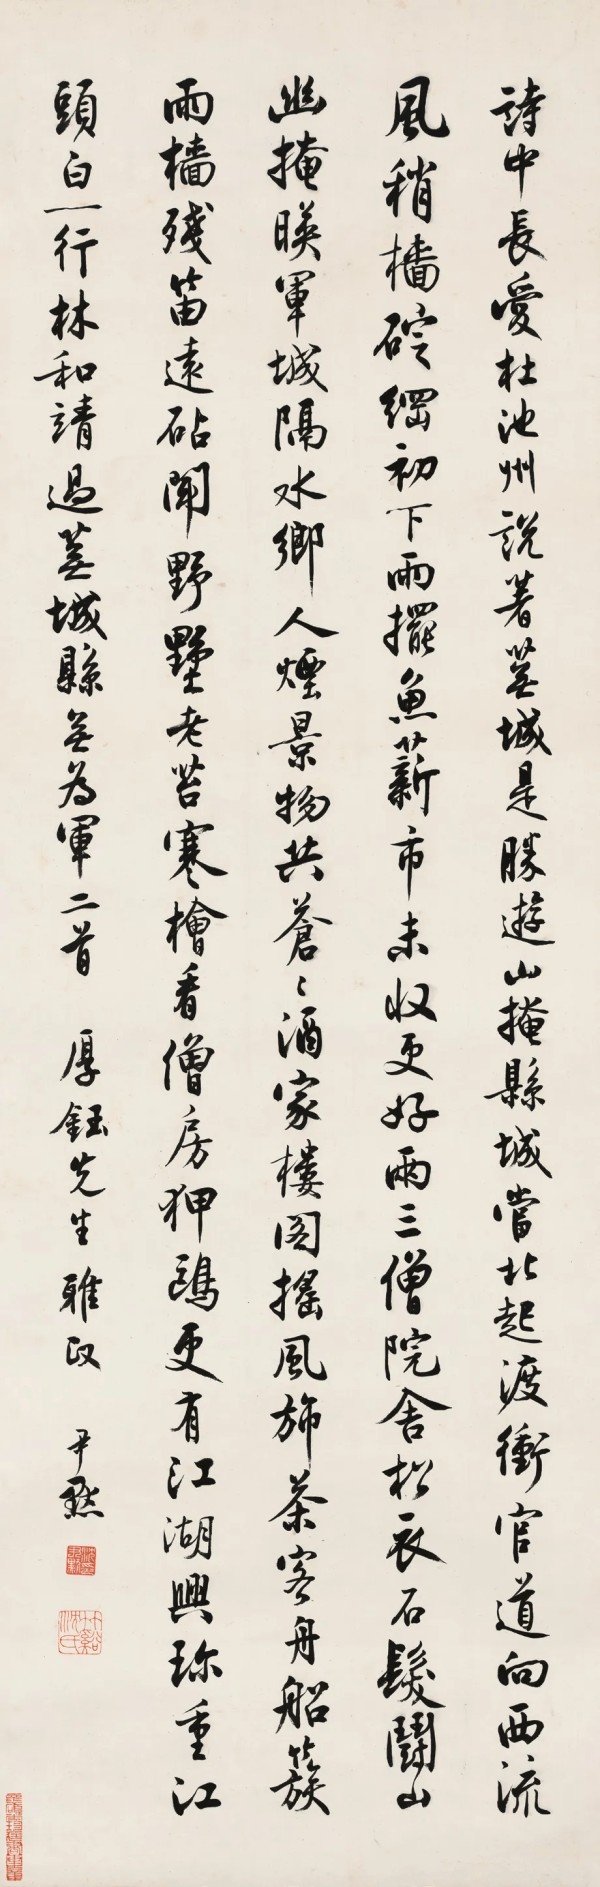 詩中長愛杜池州說著蕪城是勝遊山掩縣城當北起渡衝官道向西流
風稍檣碇綱初下雨擺魚薪市未收更好兩三僧院舍松衣石髮鬭山
幽掩暎軍城隔水鄉人煙景物共蒼〻酒家樓閣搖風斾茶客舟船簇
雨檣殘笛遠砧聞野墅老苔寒檜看僧房狎鷗更有江湖興珎重江
頭白一行林和靖過蕪城縣無為軍二首 厚鈺先生雅政 尹默
竹谿沈氏